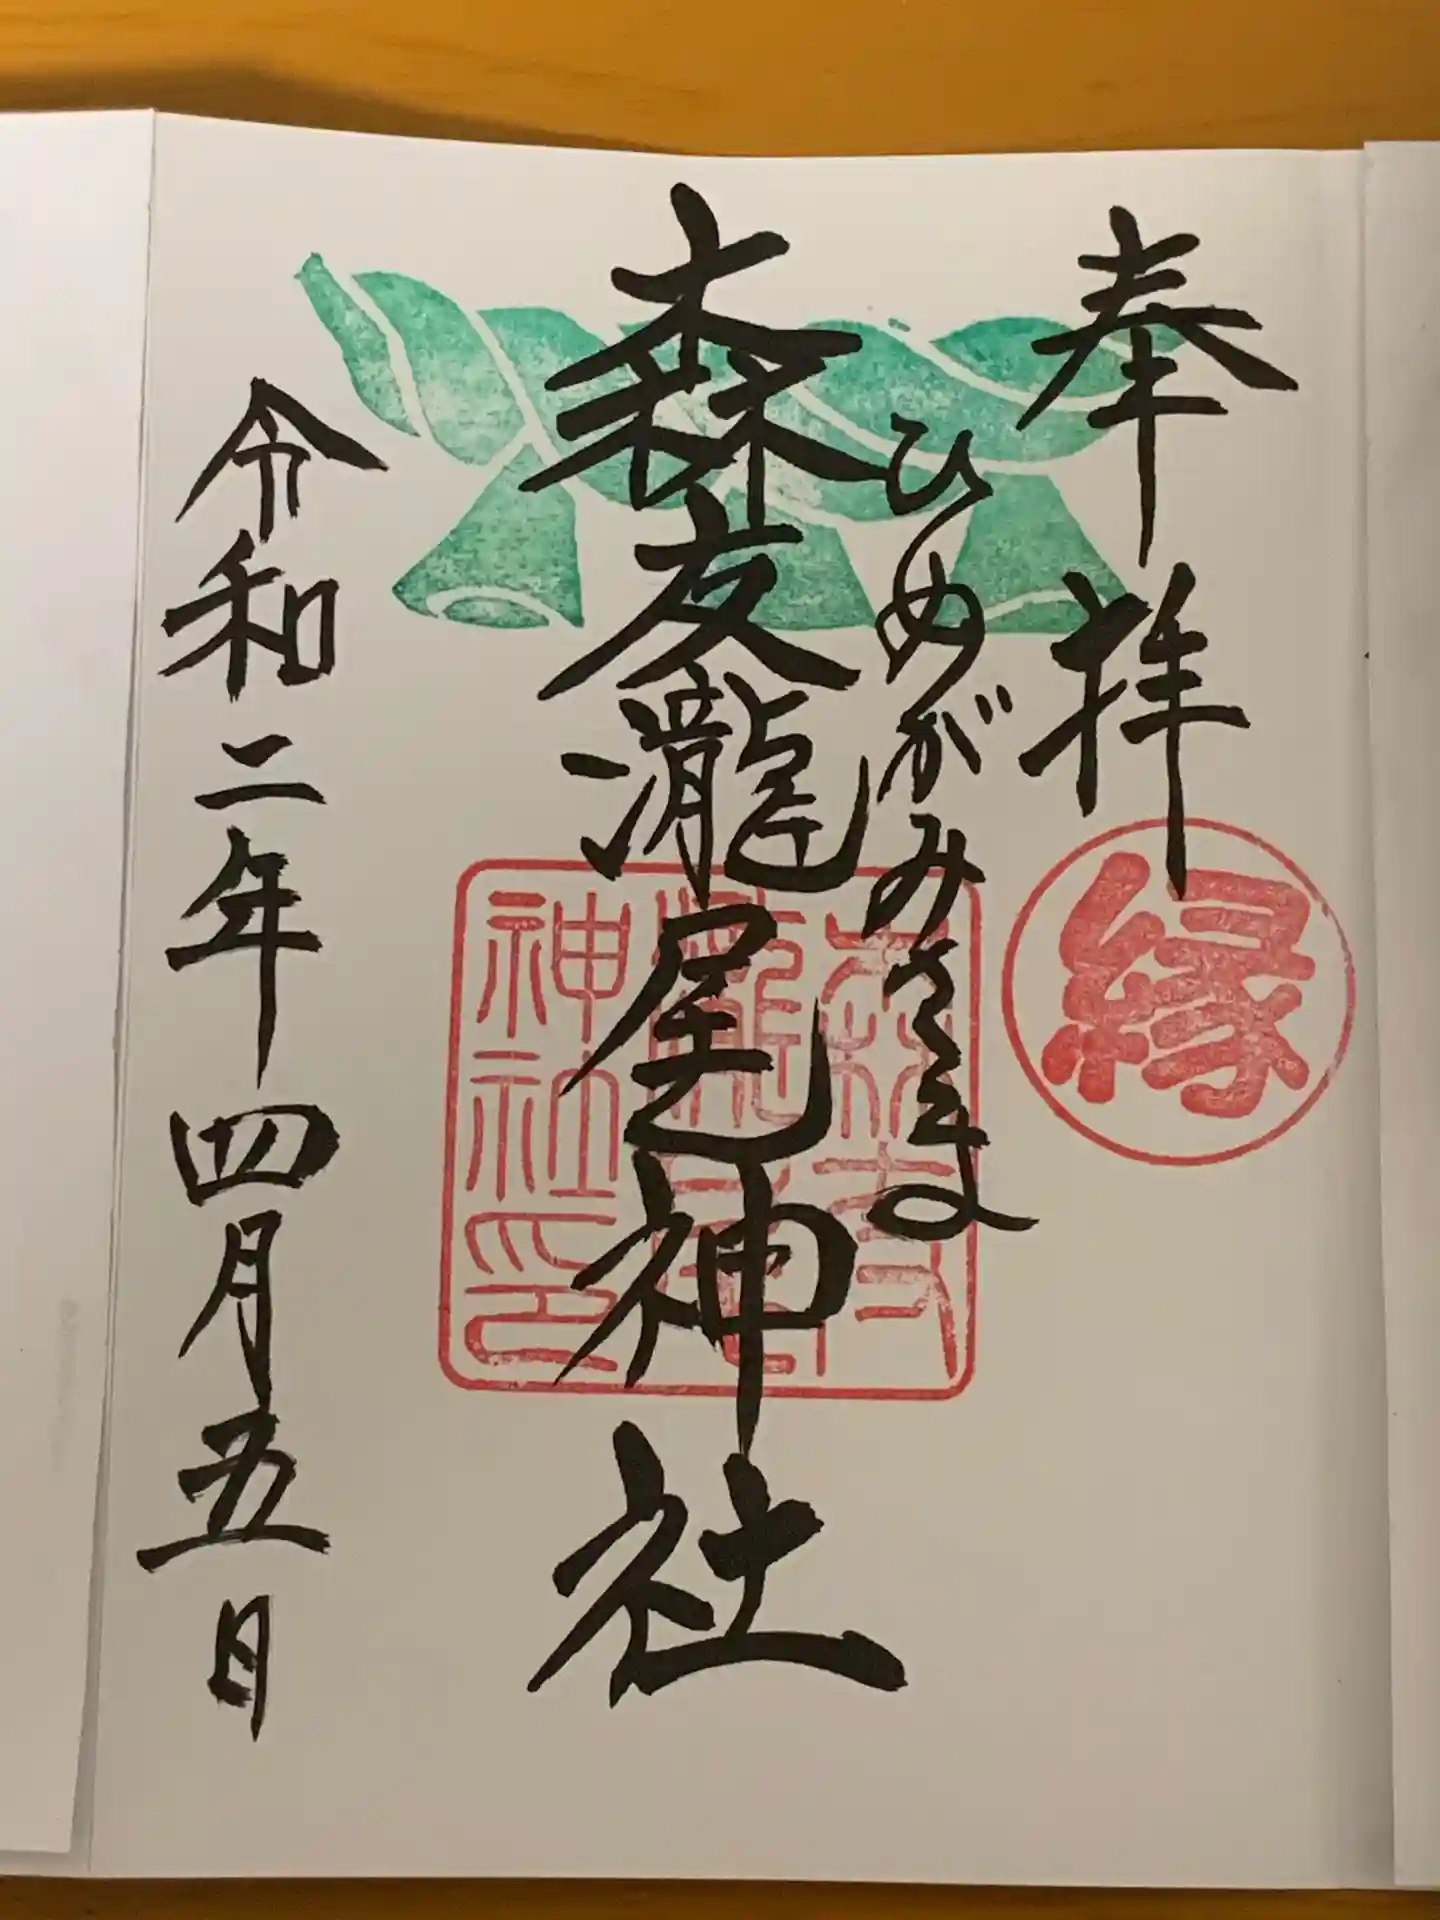 奉拝
縁
ひめがみさま
森友瀧尾神社
森友
瀧尾
神社印
令和二年四月五日